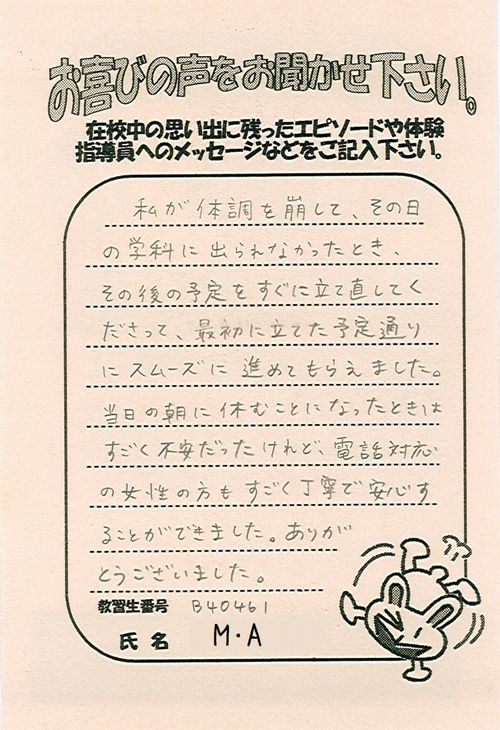 お喜びの声をお聞かせ下さい。
在校中の思い出に残ったエピソードや体験
指導員へのメッセージなどをご記入下さい。
私が体調を崩して、その日
の学科に出られなかったとき、
その後の予定をすぐに立て直してく
ださって、最初に立てた予定通り
にスムーズに進めてもらえました。
当日の朝に休むことになったときは
すごく不安だったけれど、電話対応
の女性の方もすごく丁寧で安心す
ることができました。ありが
とうございました。
教習生番号 B40461
氏名 M・A